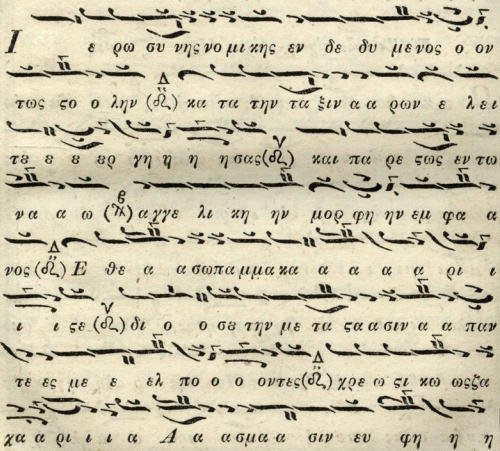 Ι ε ρω συ νης νο μι κης εν δε δυ μενος ο ον
τως ςο ο λην κα τα την τα ξιν α α ρων ε λει
τε ε ε ερ γη η η ησας και πα ρε ςως εν τω
να α α ω αγγε λι κη ην μορ φη ην εμ φα α
νος Ε θε α α σωπαμμακα α α α α ρι ι
ι ι ςε δι ο ο σε την με τα ςα α σιν α α παν
τε ες με ε ελ πο ο ο οντες χρε ω ςι κω ως ζα
χα α ρι ι ι α Α α ασμα α σιν ευ φη η η